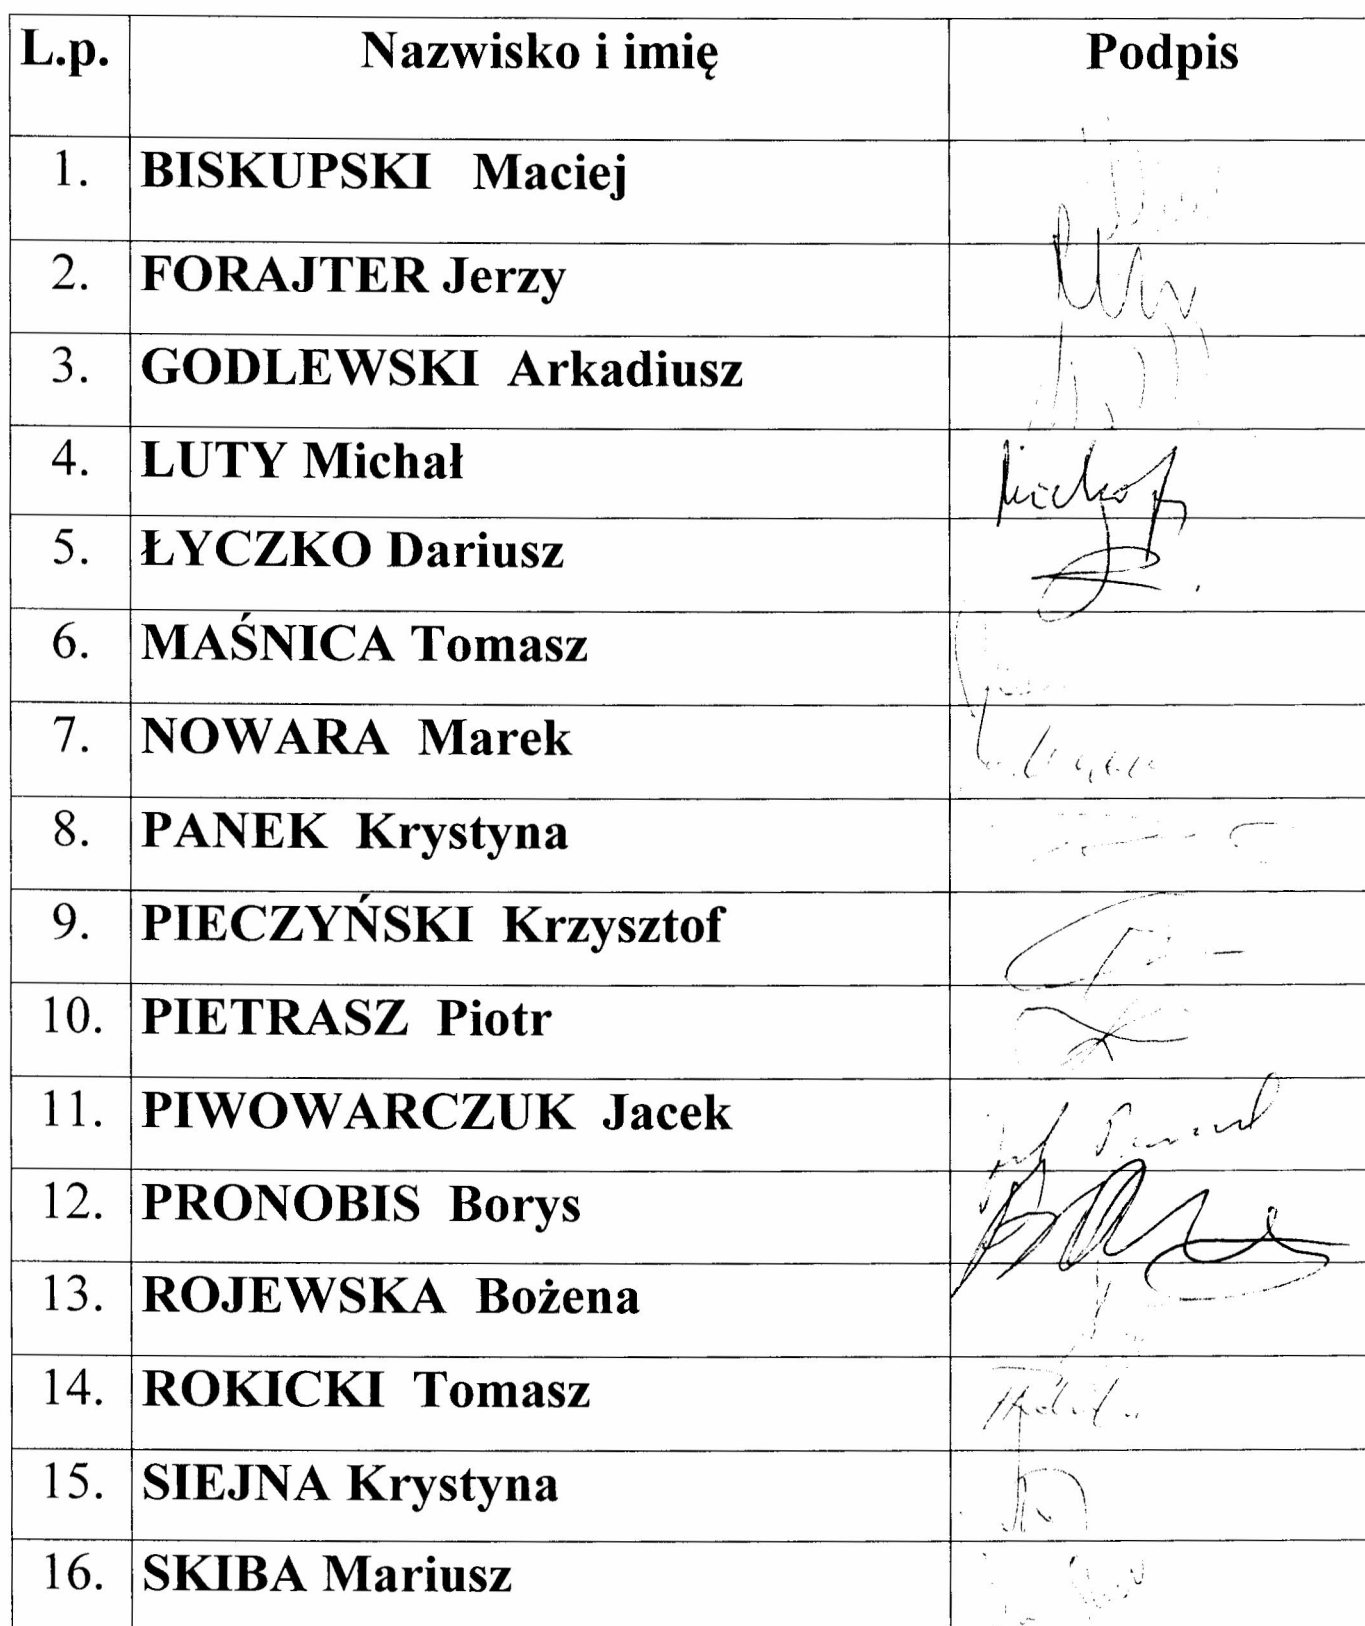 L.p. Nazwisko i imię Podpis
1. BISKUPSKI Maciej
2. FORAJTER Jerzy
3. GODLEWSKI Arkadiusz
4. LUTY Michał
5. ŁYCZKO Dariusz
6. MAŚNICA Tomasz
7. NOWARA Marek
8. PANEK Krystyna
9. PIECZYŃSKI Krzysztof
10. PIETRASZ Piotr
11. PIWOWARCZUK Jacek
12. PRONOBIS Borys
13. ROJEWSKA Bożena
14. ROKICKI Tomasz
15. SIEJNA Krystyna
16. SKIBA Mariusz